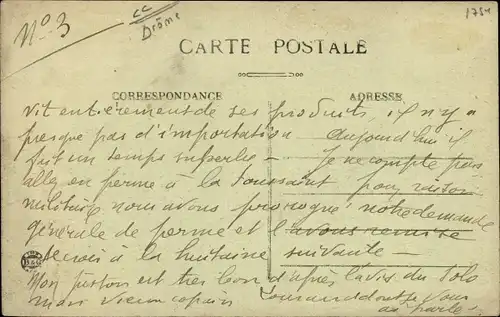 N° 3
CC
Drôme
1754
CARTE POSTALE
CORRESPONDANCE
ADRESSE
vit entièrement de ses produits, il n'y a
presque pas d'importation aujourd'hui il
fait un temps superbe – Je ne compte pas
aller en perme à la Toussaint pour raison
militaire nous avons prorogé notre demande
générale de perme et l'avons remise
à la huitaine suivante –
Mon piston est très bon d'après l'avis du Solo
mon vieux copain dont je vous
ai parlé
B & G